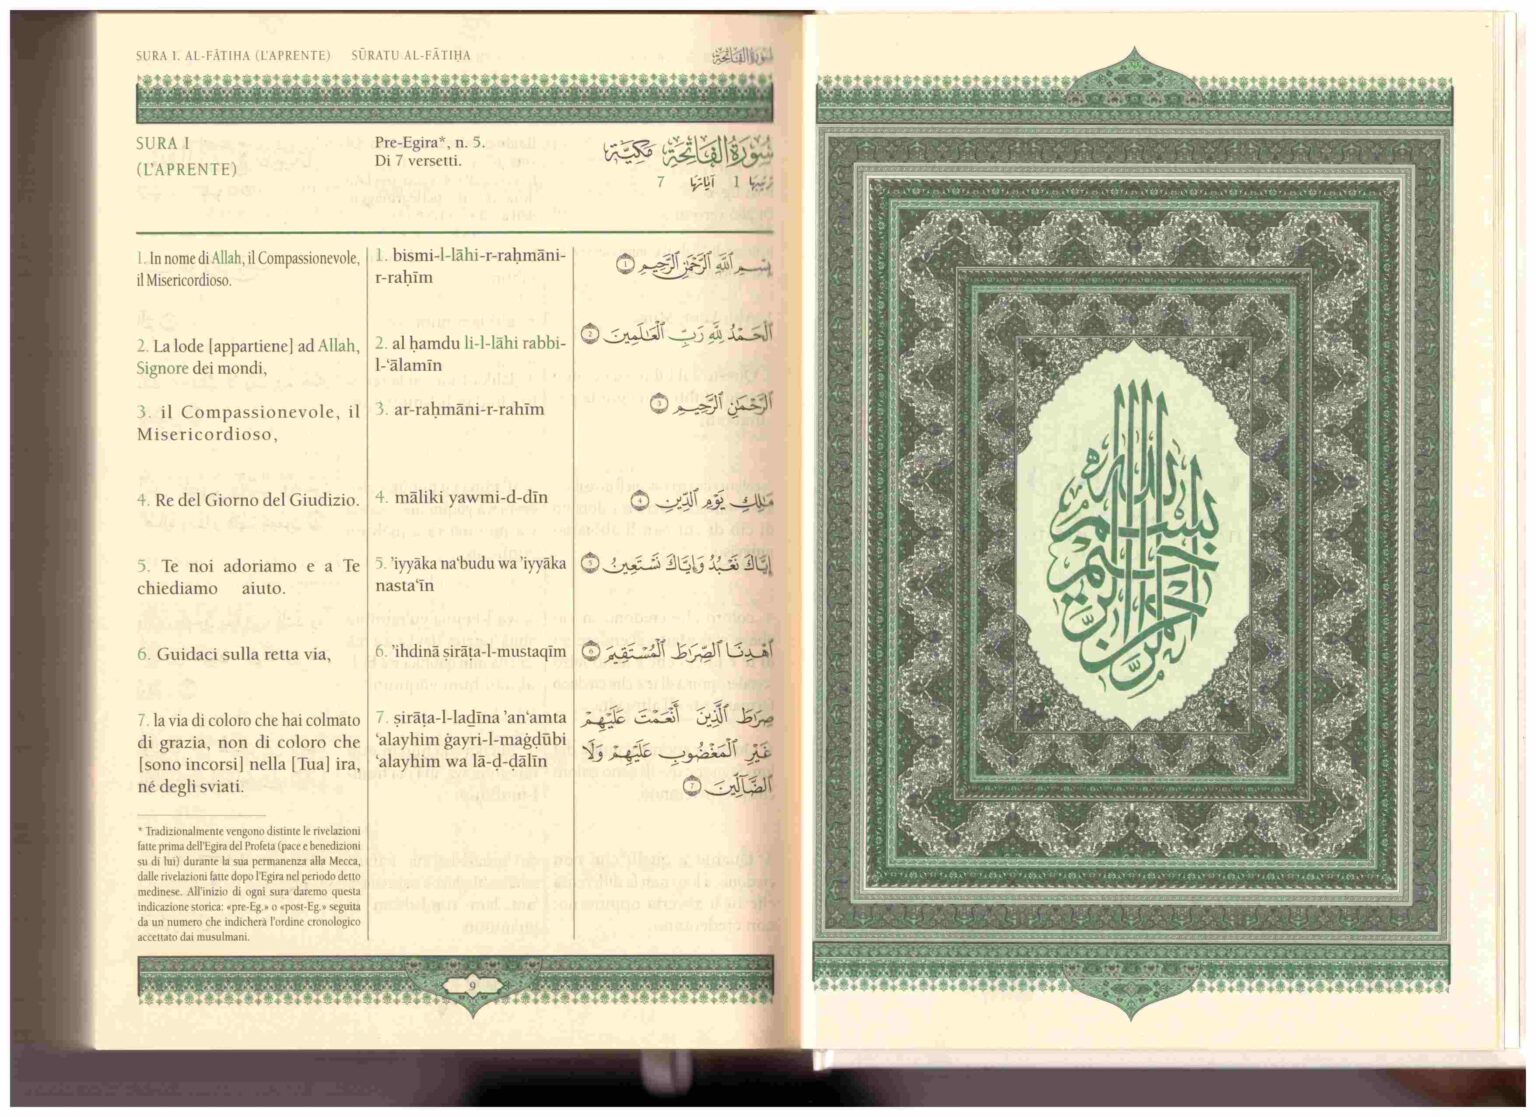 SURA I. AL-FĀTIHA (L'APRENTE) SŪRATU AL-FĀTIḤA سُورَةُ الفَاتِحَة
SURA I
(L'APRENTE)
Pre-Egira*, n. 5.
Di 7 versetti.
سُورَةُ الفَاتِحَة مَكيَّة
رَتيبها 1 آيَاتها 7
1. In nome di Allah, il Compassionevole,
il Misericordioso.
2. La lode [appartiene] ad Allah,
Signore dei mondi,
3. il Compassionevole, il
Misericordioso,
4. Re del Giorno del Giudizio.
5. Te noi adoriamo e a Te
chiediamo aiuto.
6. Guidaci sulla retta via,
7. la via di coloro che hai colmato
di grazia, non di coloro che
[sono incorsi] nella [Tua] ira,
né degli sviati.
* Tradizionalmente vengono distinte le rivelazioni
fatte prima dell'Egira del Profeta (pace e benedizioni
su di lui) durante la sua permanenza alla Mecca,
dalle rivelazioni fatte dopo l'Egira nel periodo detto
medinese. All'inizio di ogni sura daremo questa
indicazione storica: «pre-Eg.» o «post-Eg.» seguita
da un numero che indicherà l'ordine cronologico
accettato dai musulmani.
1. bismi-l-lāhi-r-raḥmāni-
r-raḥīm
2. al ḥamdu li-l-lāhi rabbi-
l-‘ālamīn
3. ar-raḥmāni-r-rahīm
4. māliki yawmi-d-dīn
5. ’iyyāka na‘budu wa ’iyyāka
nasta‘īn
6. ’ihdinā ṣirāṭa-l-mustaqīm
7. ṣirāṭa-l-laḏīna ’an‘amta
‘alayhim ġayri-l-maġḍūbi
‘alayhim wa lā-ḍ-ḍālīn
بِسْمِ ٱللَّهِ ٱلرَّحْمَٰنِ ٱلرَّحِيمِ ١
ٱلْحَمْدُ لِلَّهِ رَبِّ ٱلْعَٰلَمِينَ ٢
ٱلرَّحْمَٰنِ ٱلرَّحِيمِ ٣
مَٰلِكِ يَوْمِ ٱلدِّينِ ٤
إِيَّاكَ نَعْبُدُ وَإِيَّاكَ نَسْتَعِينُ ٥
ٱهْدِنَا ٱلصِّرَٰطَ ٱلْمُسْتَقِيمَ ٦
صِرَٰطَ ٱلَّذِينَ أَنْعَمْتَ عَلَيْهِمْ
غَيْرِ ٱلْمَغْضُوبِ عَلَيْهِمْ وَلَا
ٱلضَّآلِّينَ ٧
9
بسم الله الرحمن الرحيم